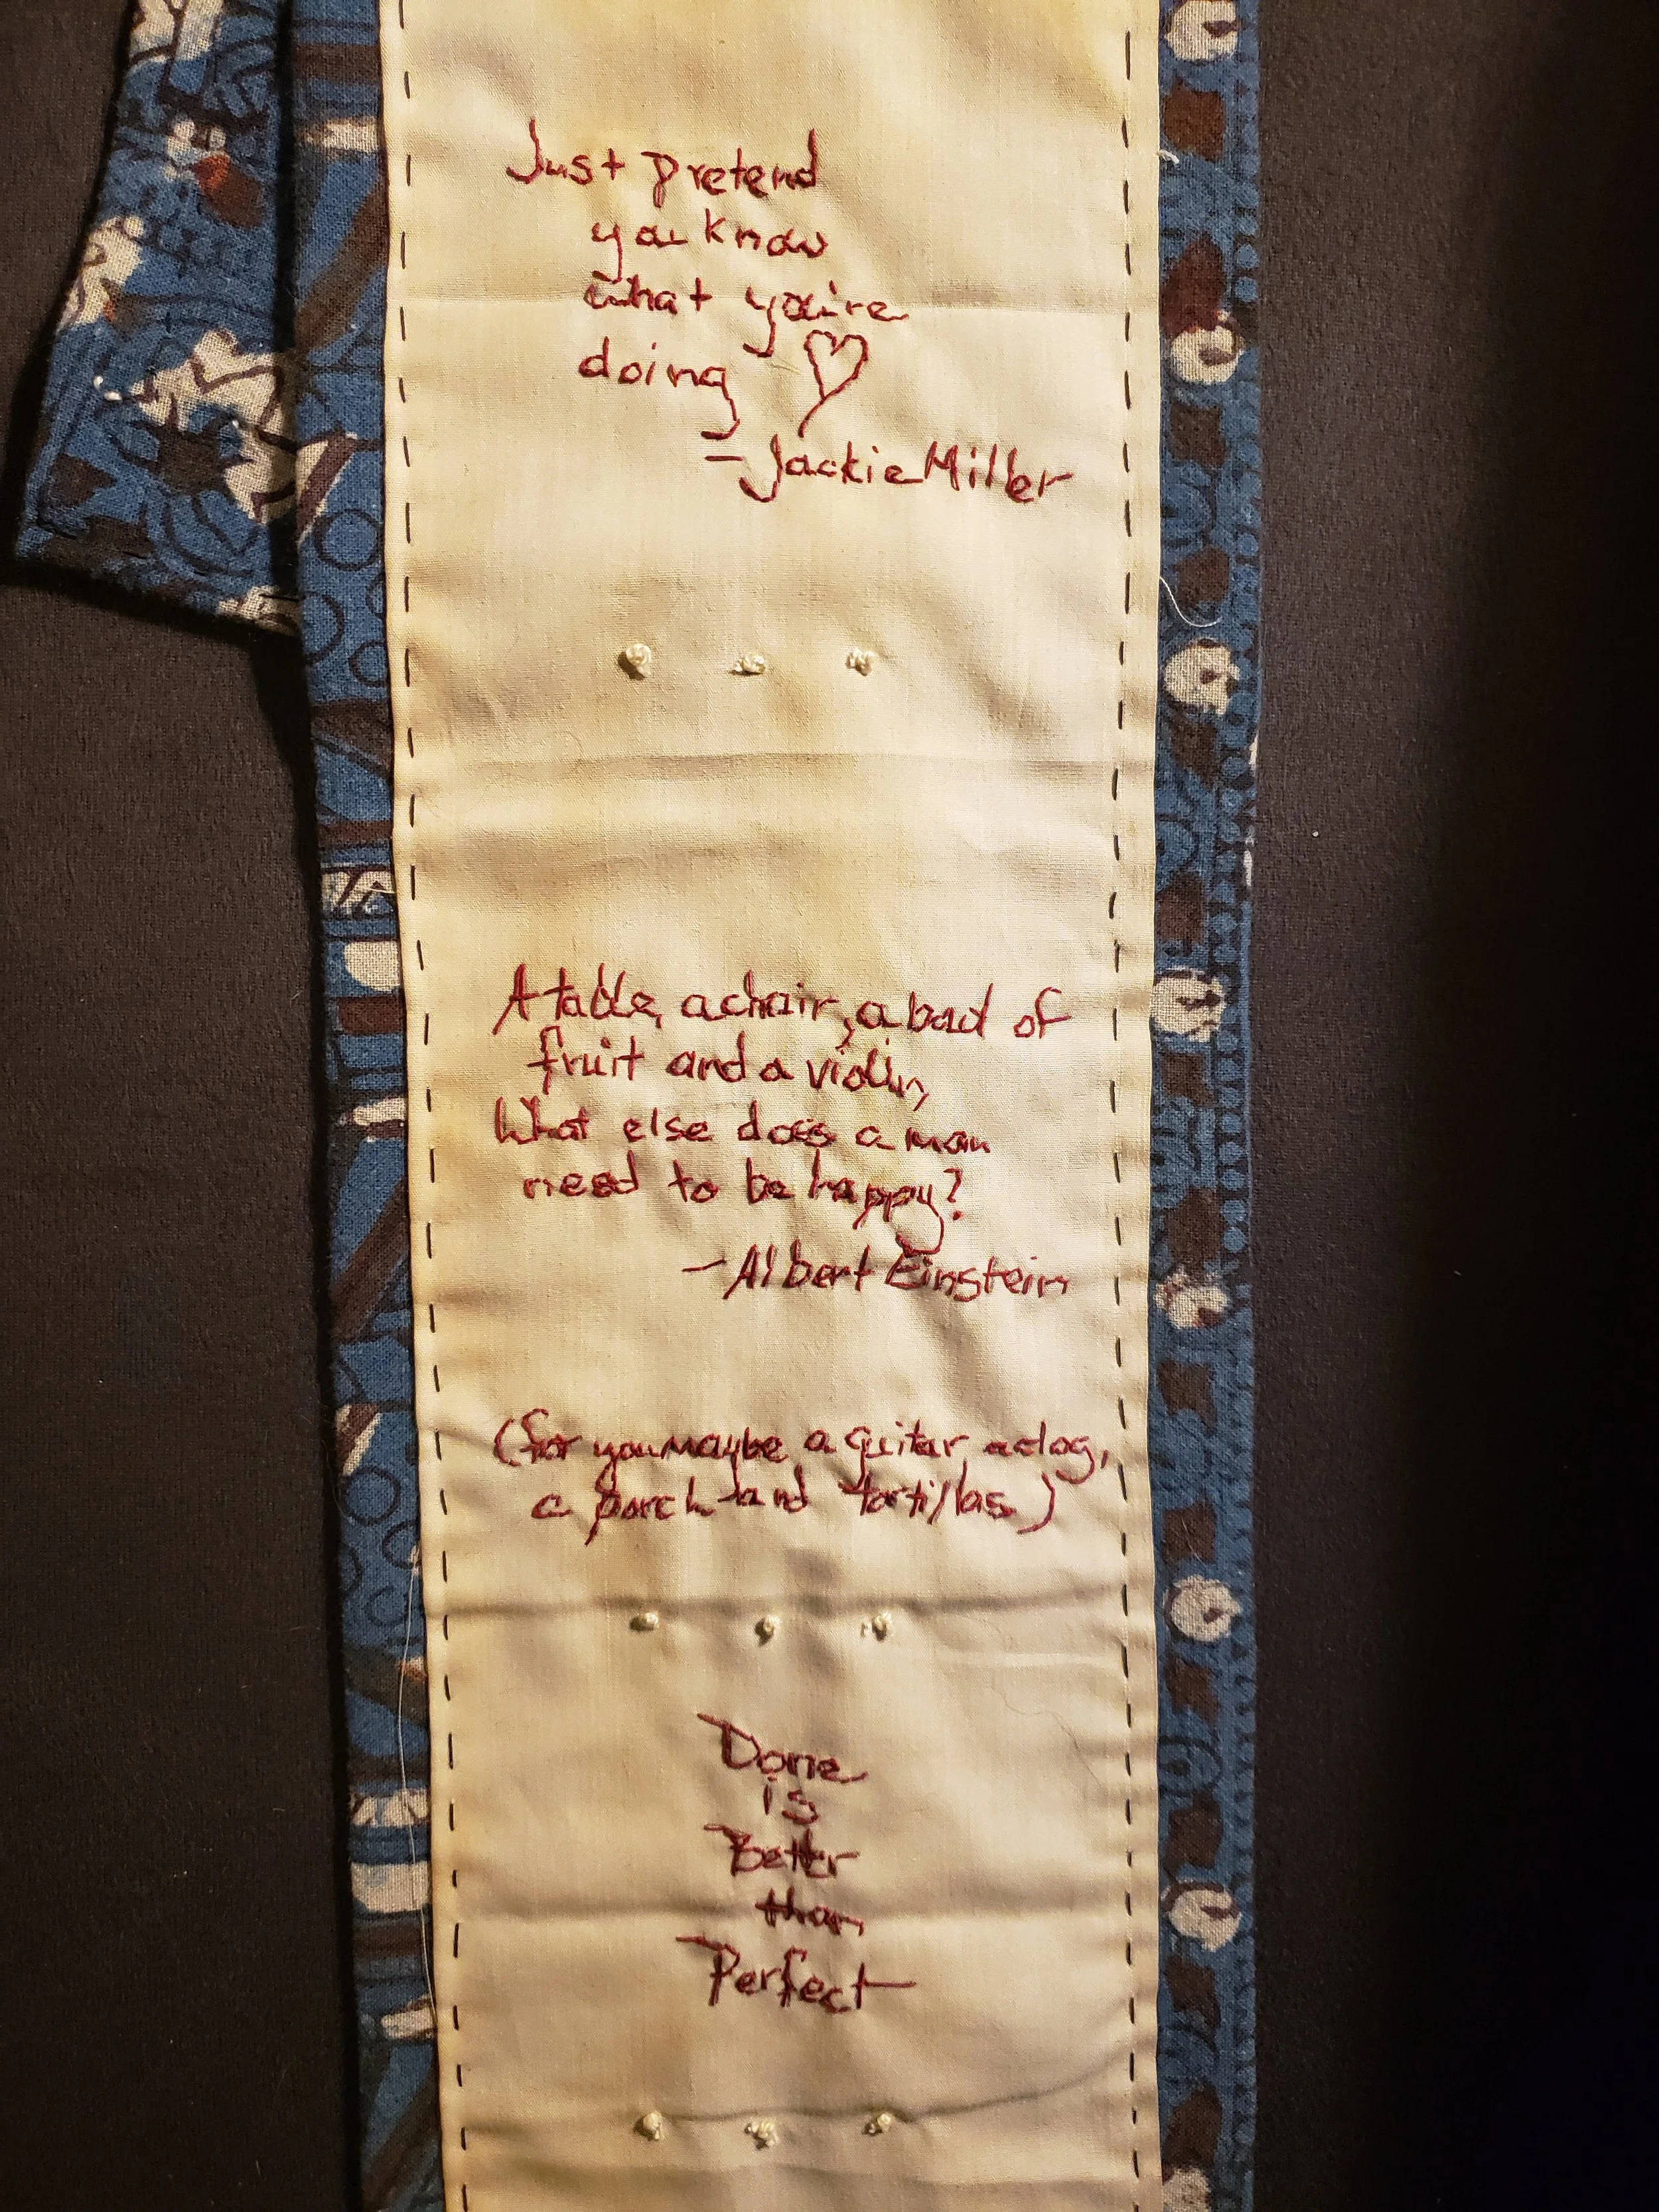 Just pretend
you know
what you're
doing ♡
- Jackie Miller
A table, a chair, a bowl of
fruit and a violin,
What else does a man
need to be happy?
- Albert Einstein
(for you maybe a guitar, a dog,
a porch and tortillas)
Done
is
Better
than
Perfect